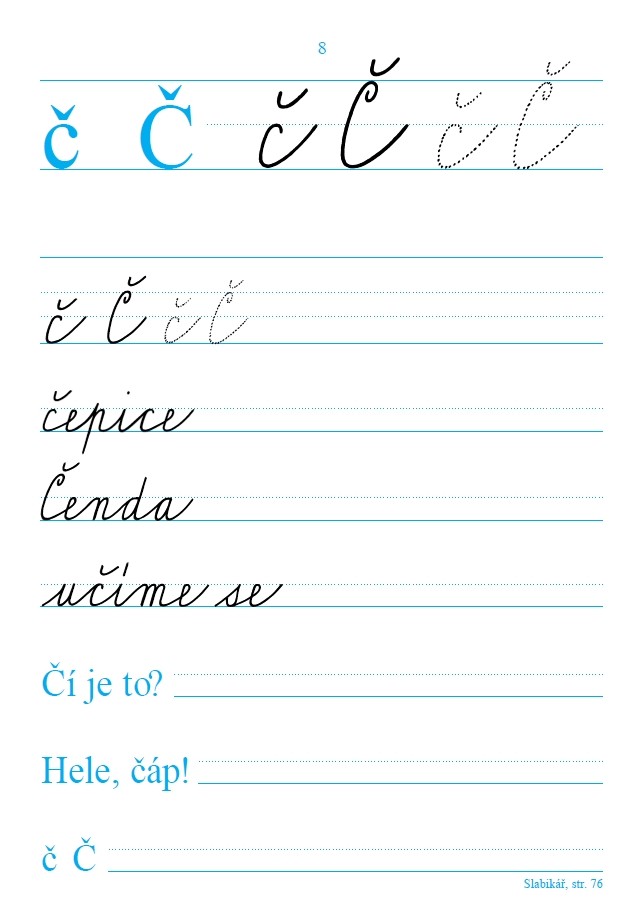 8
č Č č Č č Č
č Č č Č
čepice
Čenda
učíme se
Čí je to?
Hele, čáp!
č Č
Slabikář, str. 76